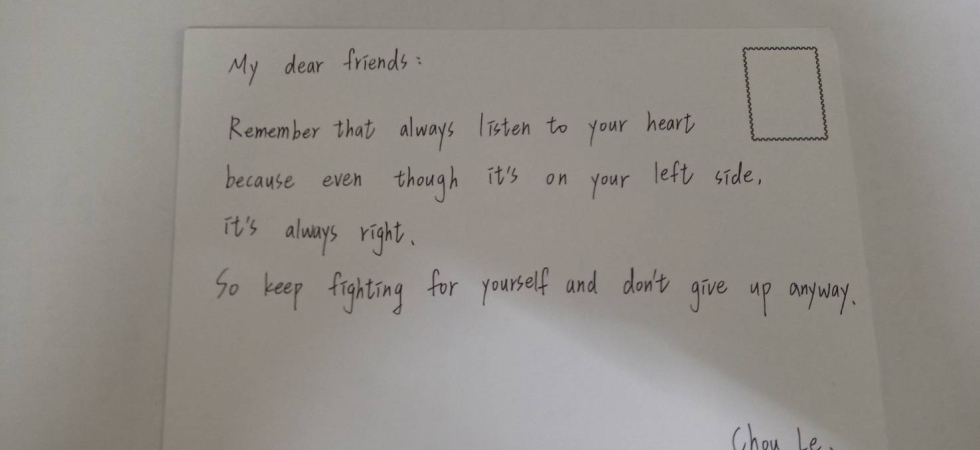 My dear friends:
Remember that always listen to your heart
because even though it's on your left side,
it's always right.
So keep fighting for yourself and don't give up anyway.
Chou Le.